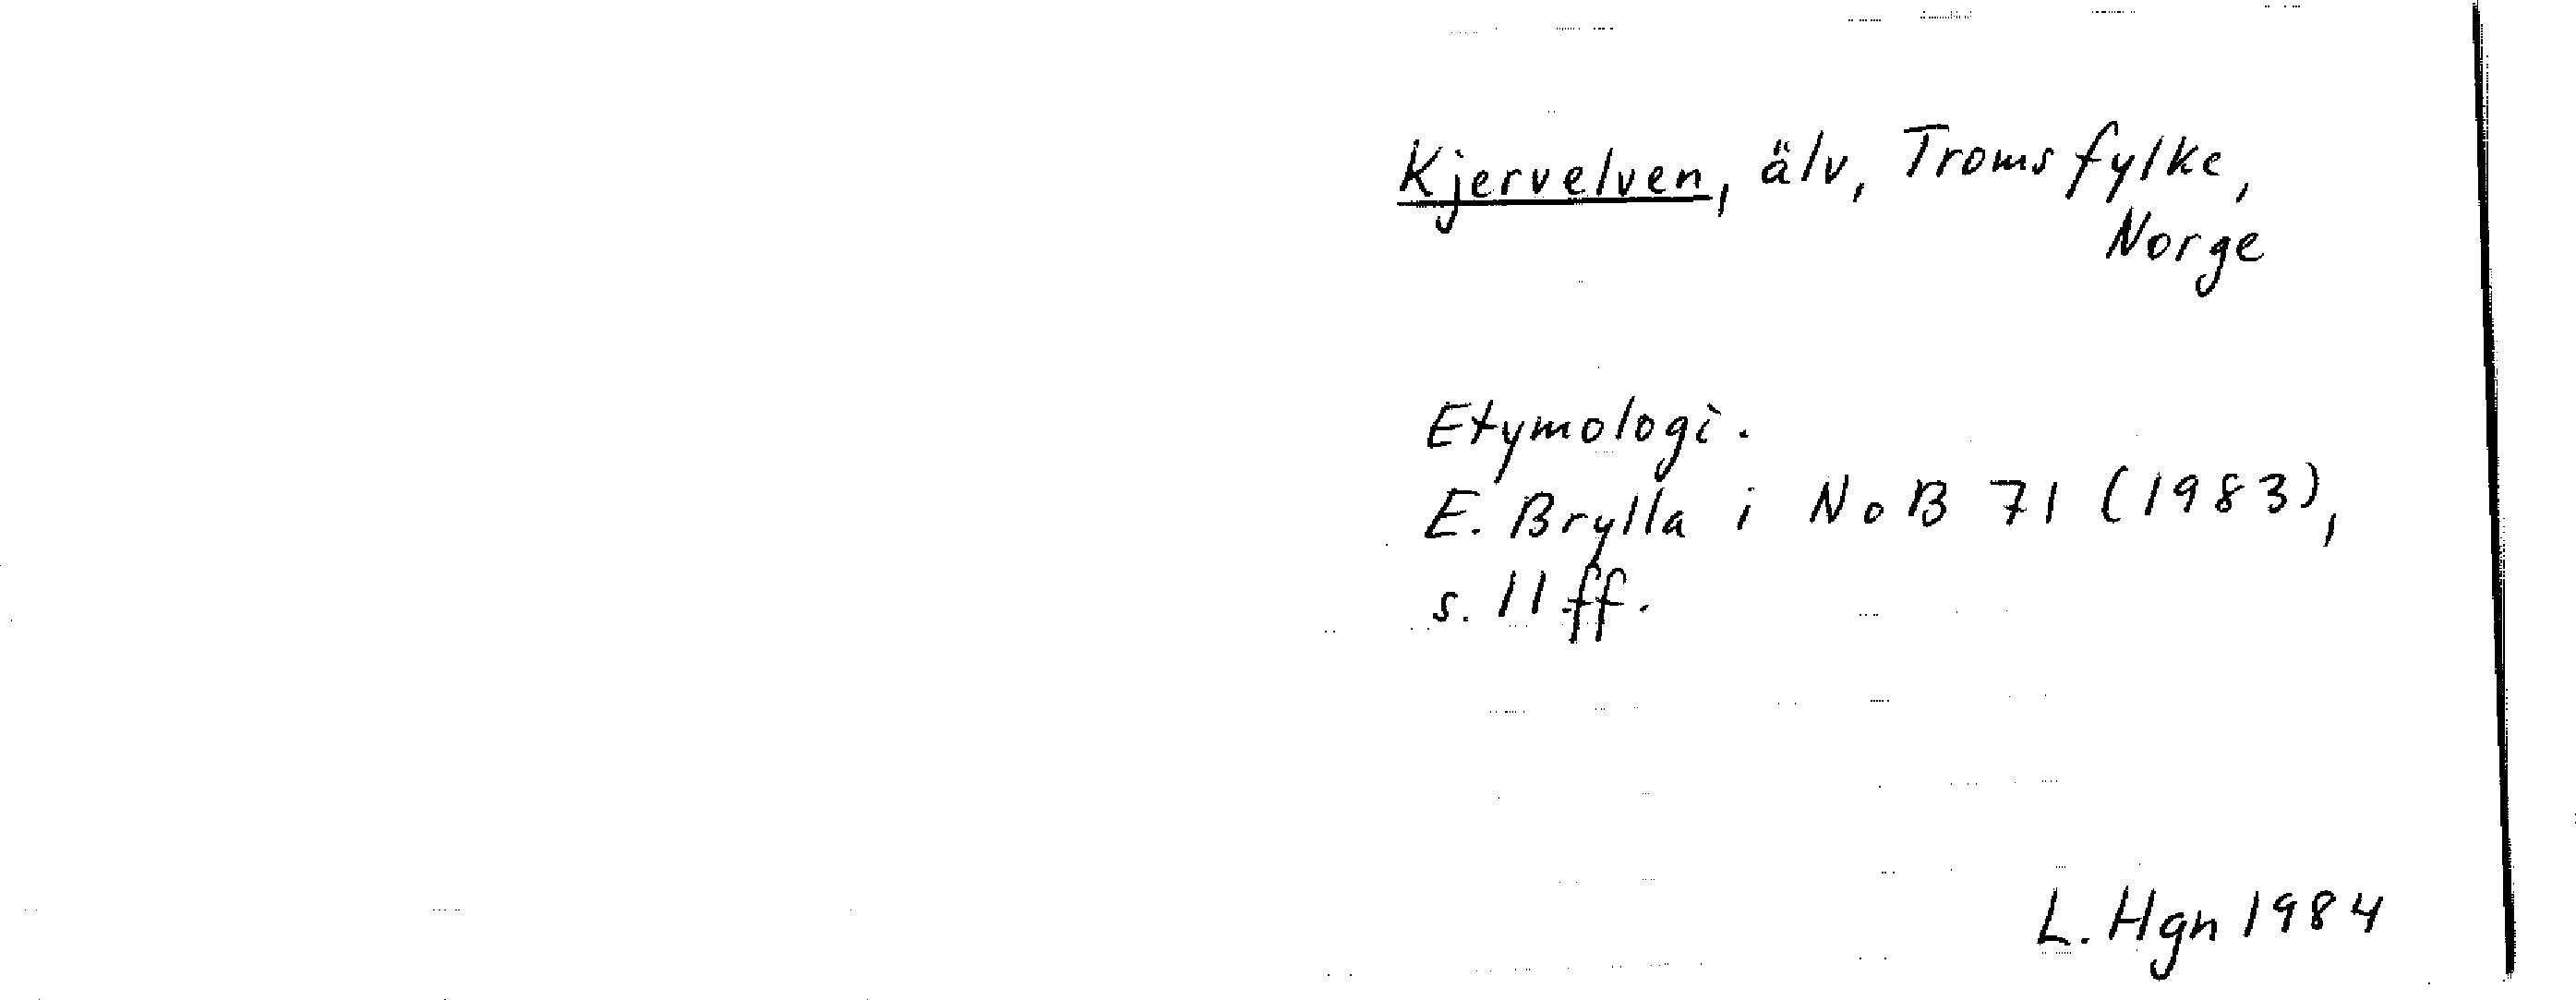 Kjervelven, älv, Troms fylke,
Norge
Etymologi.
E. Brylla i NoB 71 (1983),
s. 11 ff.
L. Hgn 1984